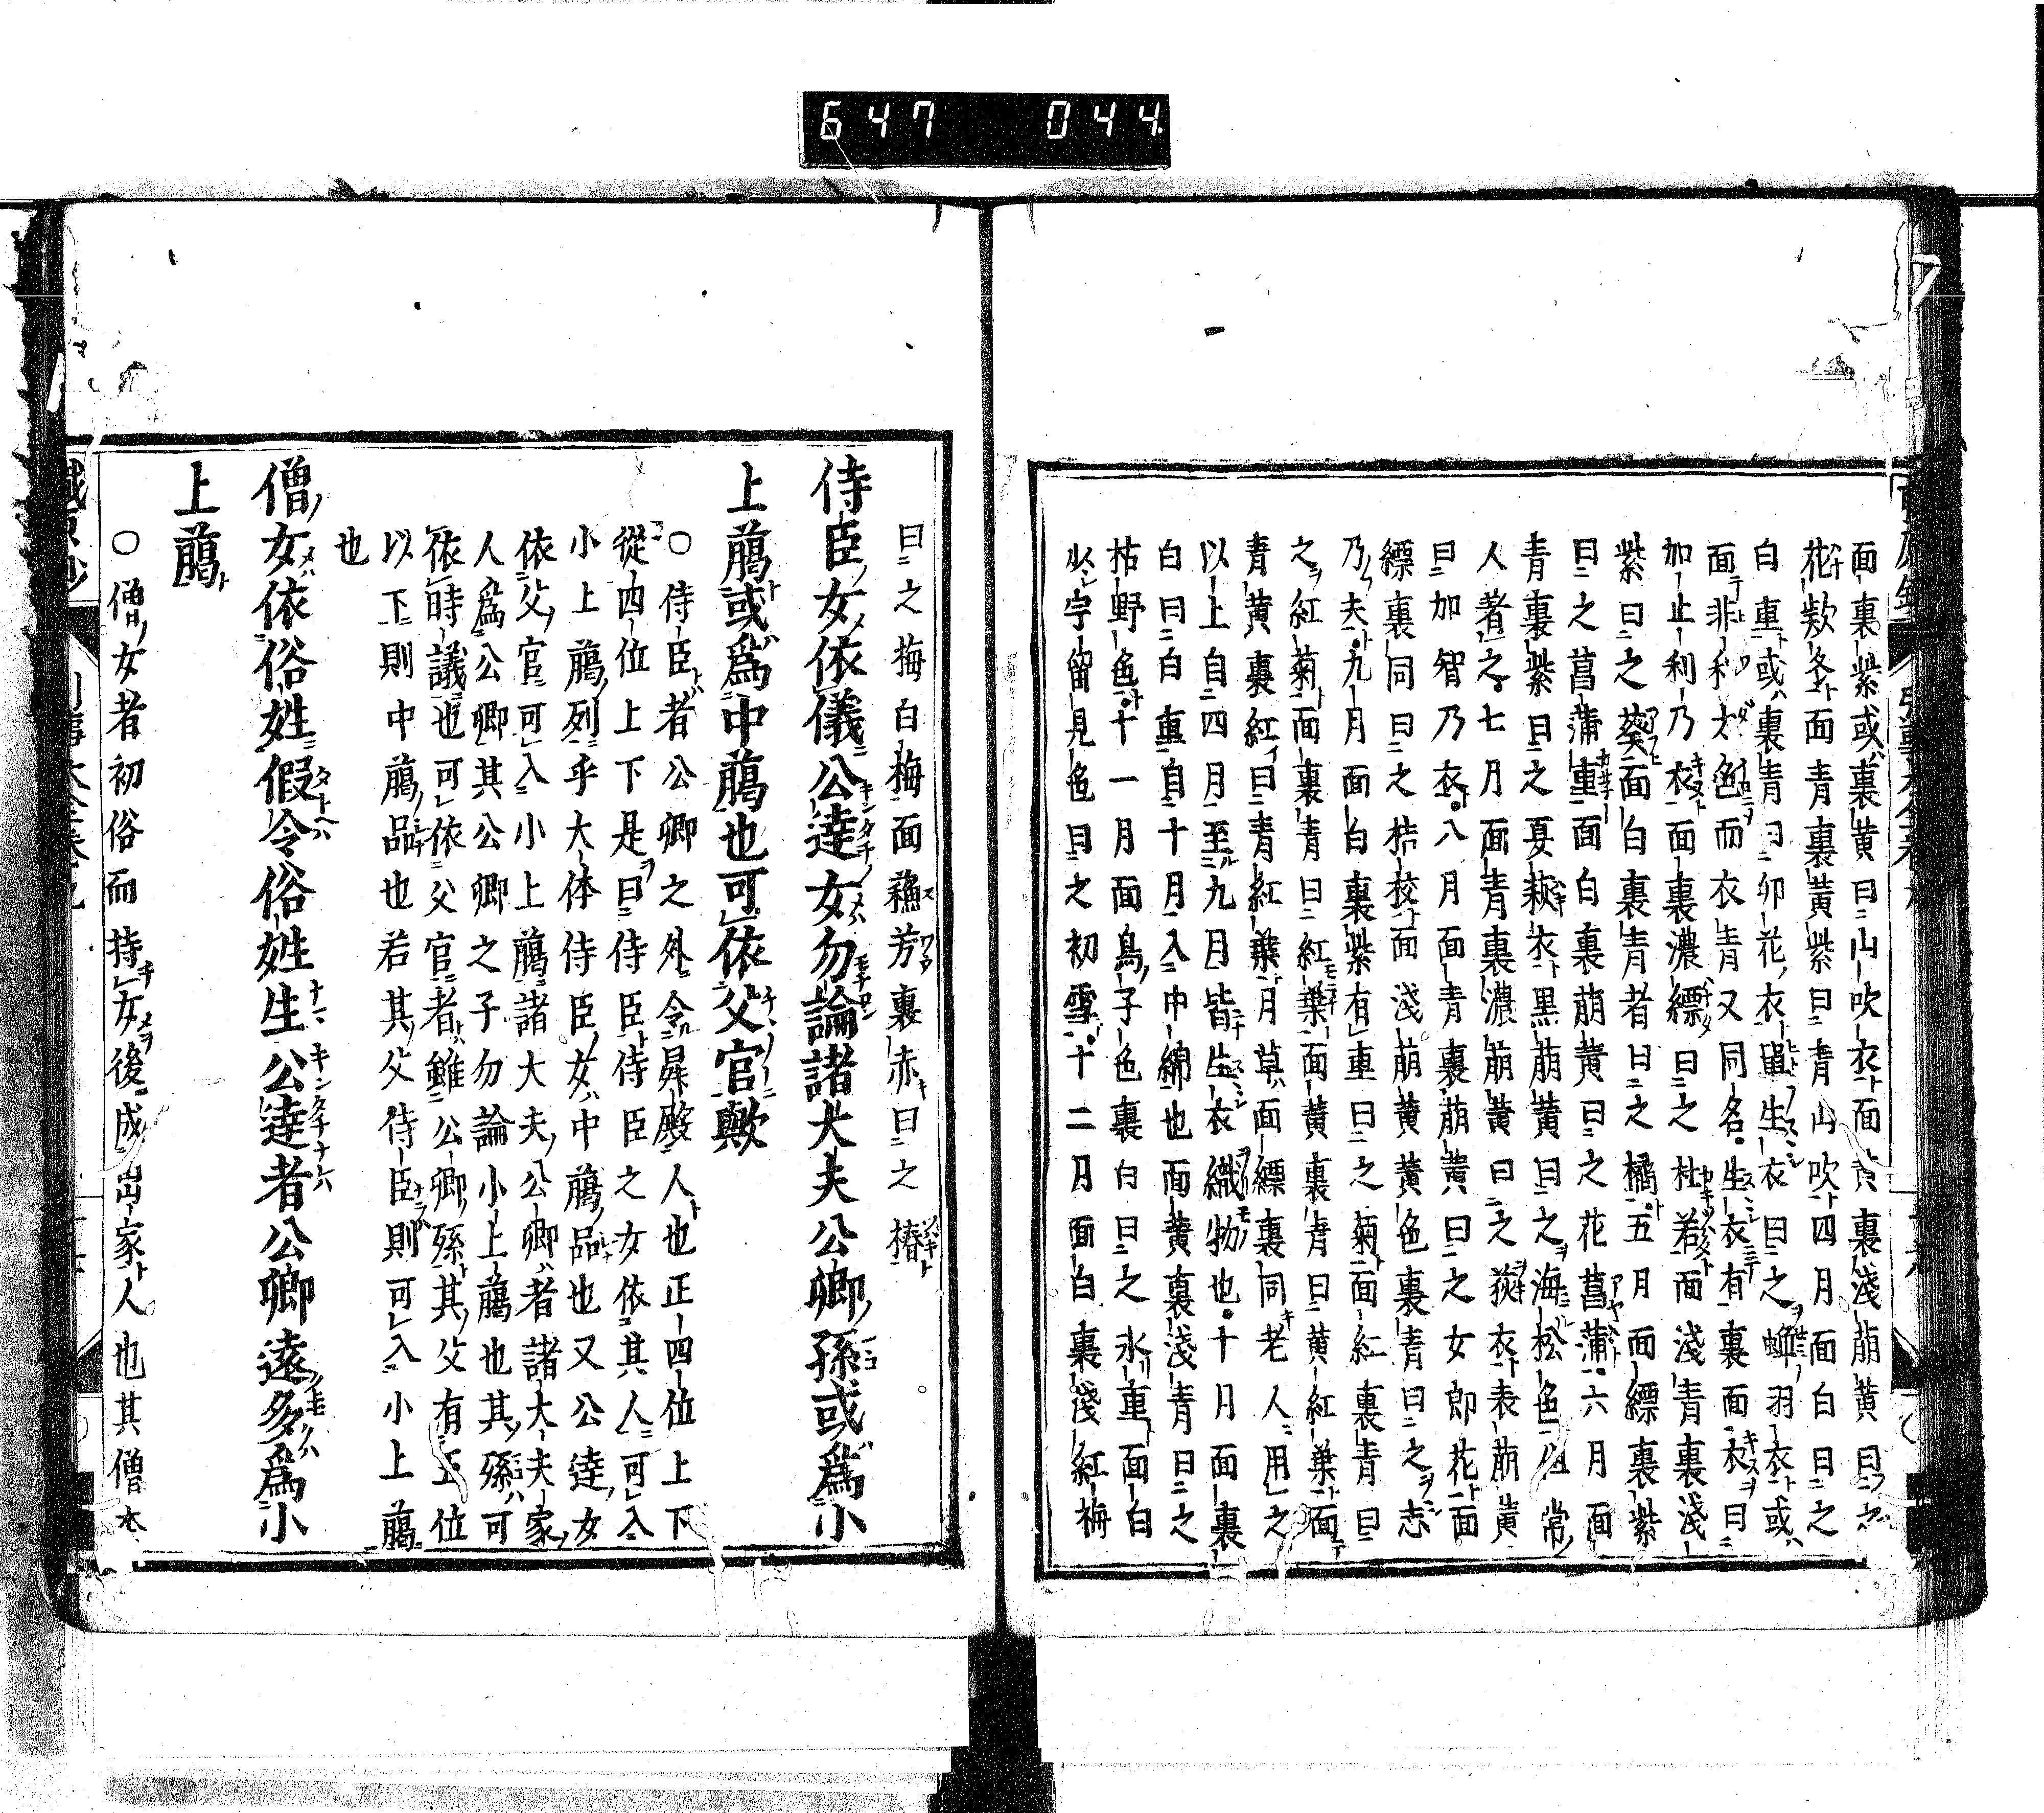 647 044
面裏紫或裏黄曰山吹衣面黄裏淺萠黄曰之
花欵冬面青裏黄紫曰青山吹四月面白曰之
白重或裏青曰卯花衣單生衣曰之蟬羽衣或
面非利太色而衣青又同名生衣有裏面衣曰
加止利乃衣面裏濃縹曰之杜若面淺青裏淺
紫曰之葵面白裏青者曰之橘五月面縹裏紫
曰之菖蒲重面白裏萠黄曰之花菖蒲六月面
青裏紫曰之夏萩衣黒萠黄曰之海松色 常
人著之七月面青裏濃萠黄曰之荻衣表萠黄
曰加智乃衣八月面青裏萠黄曰之女郎花面
縹裏同曰之桔校面淺萠黄黄色裏青曰之志
乃夫九月面白裏紫有重曰之菊面紅裏青曰
之紅菊面裏青曰紅葉面黄裏青曰黄紅葉面
青黄裏紅曰青紅葉月草面縹裏同老人用之
以上自四月至九月皆生衣織物也十月面裏
白曰白重自十月入中綿也面黄裏淺青曰之
枯野色十一月面鳥子色裏白曰之氷重面白
必字留見色曰之初雪十二月面白裏淺紅梅
曰之梅白梅面蘓芳裏赤曰之椿
侍臣女依儀公達女勿論諸大夫公卿孫或爲小
上﨟或爲中﨟也可依父官歟
〇侍臣者公卿之外令昇殿人也正四位上下
從四位上下是曰侍臣侍臣之女依其人可入
小上﨟列乎大体侍臣女中﨟品也又公達女
依父官可入小上﨟諸大夫公卿者諸大夫家
人爲公卿其公卿之子勿論小上﨟也其孫可
依時議也可依父官者雖公卿孫其父有五位
以下則中﨟品也若其父侍臣則可入小上﨟
也
僧女依俗姓假令俗姓生公達者公卿遠多爲小
上﨟
〇僧女者初俗而持女後成出家人也其僧本